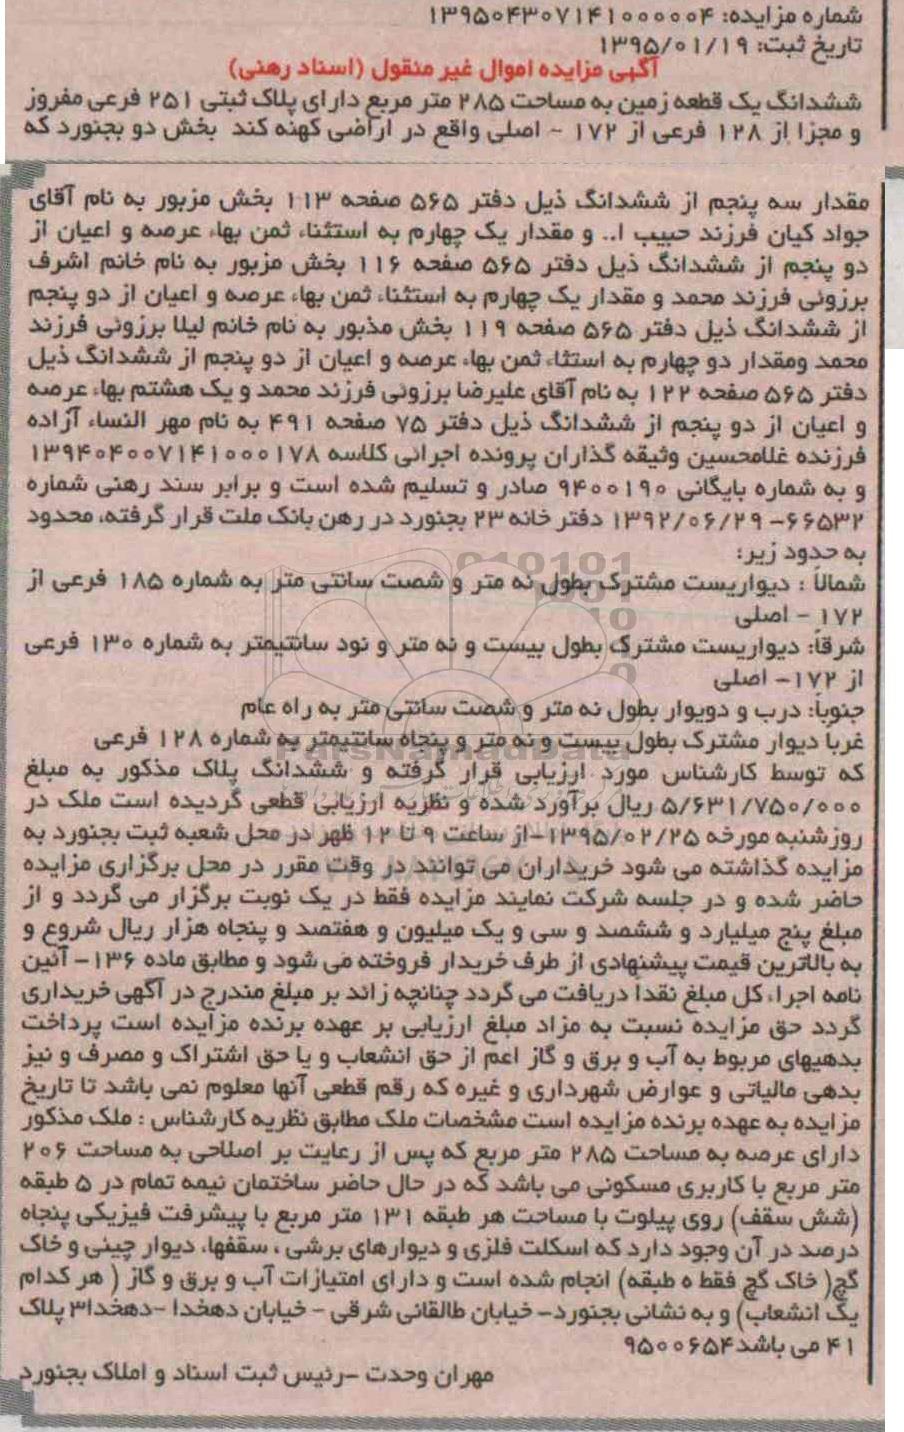 شماره مزایده: ۱۳۹۵۰۴۳۰۷۱۴۱۰۰۰۰۰۴
تاریخ ثبت: ۱۳۹۵/۰۱/۱۹
آگهی مزایده اموال غیر منقول (اسناد رهنی)
ششدانگ یک قطعه زمین به مساحت ۲۸۵ متر مربع دارای پلاک ثبتی ۲۵۱ فرعی مفروز
و مجزا از ۱۲۸ فرعی از ۱۷۲ - اصلی واقع در اراضی کهنه کند بخش دو بجنورد که
مقدار سه پنجم از ششدانگ ذیل دفتر ۵۶۵ صفحه ۱۱۳ بخش مزبور به نام آقای
جواد کیان فرزند حبیب ا.. و مقدار یک چهارم به استثناء ثمن بهاء عرصه و اعیان از
دو پنجم از ششدانگ ذیل دفتر ۵۶۵ صفحه ۱۱۶ بخش مزبور به نام خانم اشرف
برزوئی فرزند محمد و مقدار یک چهارم به استثناء ثمن بهاء عرصه و اعیان از دو پنجم
از ششدانگ ذیل دفتر ۵۶۵ صفحه ۱۱۹ بخش مذبور به نام خانم لیلا برزوئی فرزند
محمد ومقدار دو چهارم به استثاء ثمن بهاء عرصه و اعیان از دو پنجم از ششدانگ ذیل
دفتر ۵۶۵ صفحه ۱۲۲ به نام آقای علیرضا برزوئی فرزند محمد و یک هشتم بهاء عرصه
و اعیان از دو پنجم از ششدانگ ذیل دفتر ۷۵ صفحه ۴۹۱ به نام مهر النساء آزاده
فرزنده غلامحسین وثیقه گذاران پرونده اجرائی کلاسه ۱۳۹۴۰۴۰۰۷۱۴۱۰۰۰۱۷۸
و به شماره بایگانی ۹۴۰۰۱۹۰ صادر و تسلیم شده است و برابر سند رهنی شماره
۶۶۵۳۲- ۱۳۹۲/۰۶/۲۹ دفتر خانه ۲۳ بجنورد در رهن بانک ملت قرار گرفته، محدود
به حدود زیر:
شمالاً : دیواریست مشترک بطول نه متر و شصت سانتی متر به شماره ۱۸۵ فرعی از
۱۷۲ - اصلی
شرقاً: دیواریست مشترک بطول بیست و نه متر و نود سانتیمتر به شماره ۱۳۰ فرعی
از ۱۷۲- اصلی
جنوباً: درب و دویوار بطول نه متر و شصت سانتی متر به راه عام
غرباً دیوار مشترک بطول بیست و نه متر و پنجاه سانتیمتر به شماره ۱۲۸ فرعی
که توسط کارشناس مورد ارزیابی قرار گرفته و ششدانگ پلاک مذکور به مبلغ
۵/۶۳۱/۷۵۰/۰۰۰ ریال برآورد شده و نظریه ارزیابی قطعی گردیده است ملک در
روزشنبه مورخه ۱۳۹۵/۰۲/۲۵-از ساعت ۹ تا ۱۲ ظهر در محل شعبه ثبت بجنورد به
مزایده گذاشته می شود خریداران می توانند در وقت مقرر در محل برگزاری مزایده
حاضر شده و در جلسه شرکت نمایند مزایده فقط در یک نوبت برگزار می گردد و از
مبلغ پنج میلیارد و ششصد و سی و یک میلیون و هفتصد و پنجاه هزار ریال شروع و
به بالاترین قیمت پیشنهادی از طرف خریدار فروخته می شود و مطابق ماده ۱۳۶- آئین
نامه اجراء کل مبلغ نقداً دریافت می گردد چنانچه زائد بر مبلغ مندرج در آگهی خریداری
گردد حق مزایده نسبت به مزاد مبلغ ارزیابی بر عهده برنده مزایده است پرداخت
بدهیهای مربوط به آب و برق و گاز اعم از حق انشعاب و یا حق اشتراک و مصرف و نیز
بدهی مالیاتی و عوارض شهرداری و غیره که رقم قطعی آنها معلوم نمی باشد تا تاریخ
مزایده به عهده برنده مزایده است مشخصات ملک مطابق نظریه کارشناس : ملک مذکور
دارای عرصه به مساحت ۲۸۵ متر مربع که پس از رعایت بر اصلاحی به مساحت ۲۰۶
متر مربع با کاربری مسکونی می باشد که در حال حاضر ساختمان نیمه تمام در ۵ طبقه
(شش سقف) روی پیلوت با مساحت هر طبقه ۱۳۱ متر مربع با پیشرفت فیزیکی پنجاه
درصد در آن وجود دارد که اسکلت فلزی و دیوارهای برشی ، سقفها، دیوار چینی و خاک
گچ( خاک گچ فقط ۵ طبقه) انجام شده است و دارای امتیازات آب و برق و گاز ( هر کدام
یک انشعاب) و به نشانی بجنورد- خیابان طالقانی شرقی - خیابان دهخدا -دهخدا۳ پلاک
۴۱ می باشد ۹۵۰۰۶۵۴
مهران وحدت -رئیس ثبت اسناد و املاک بجنورد